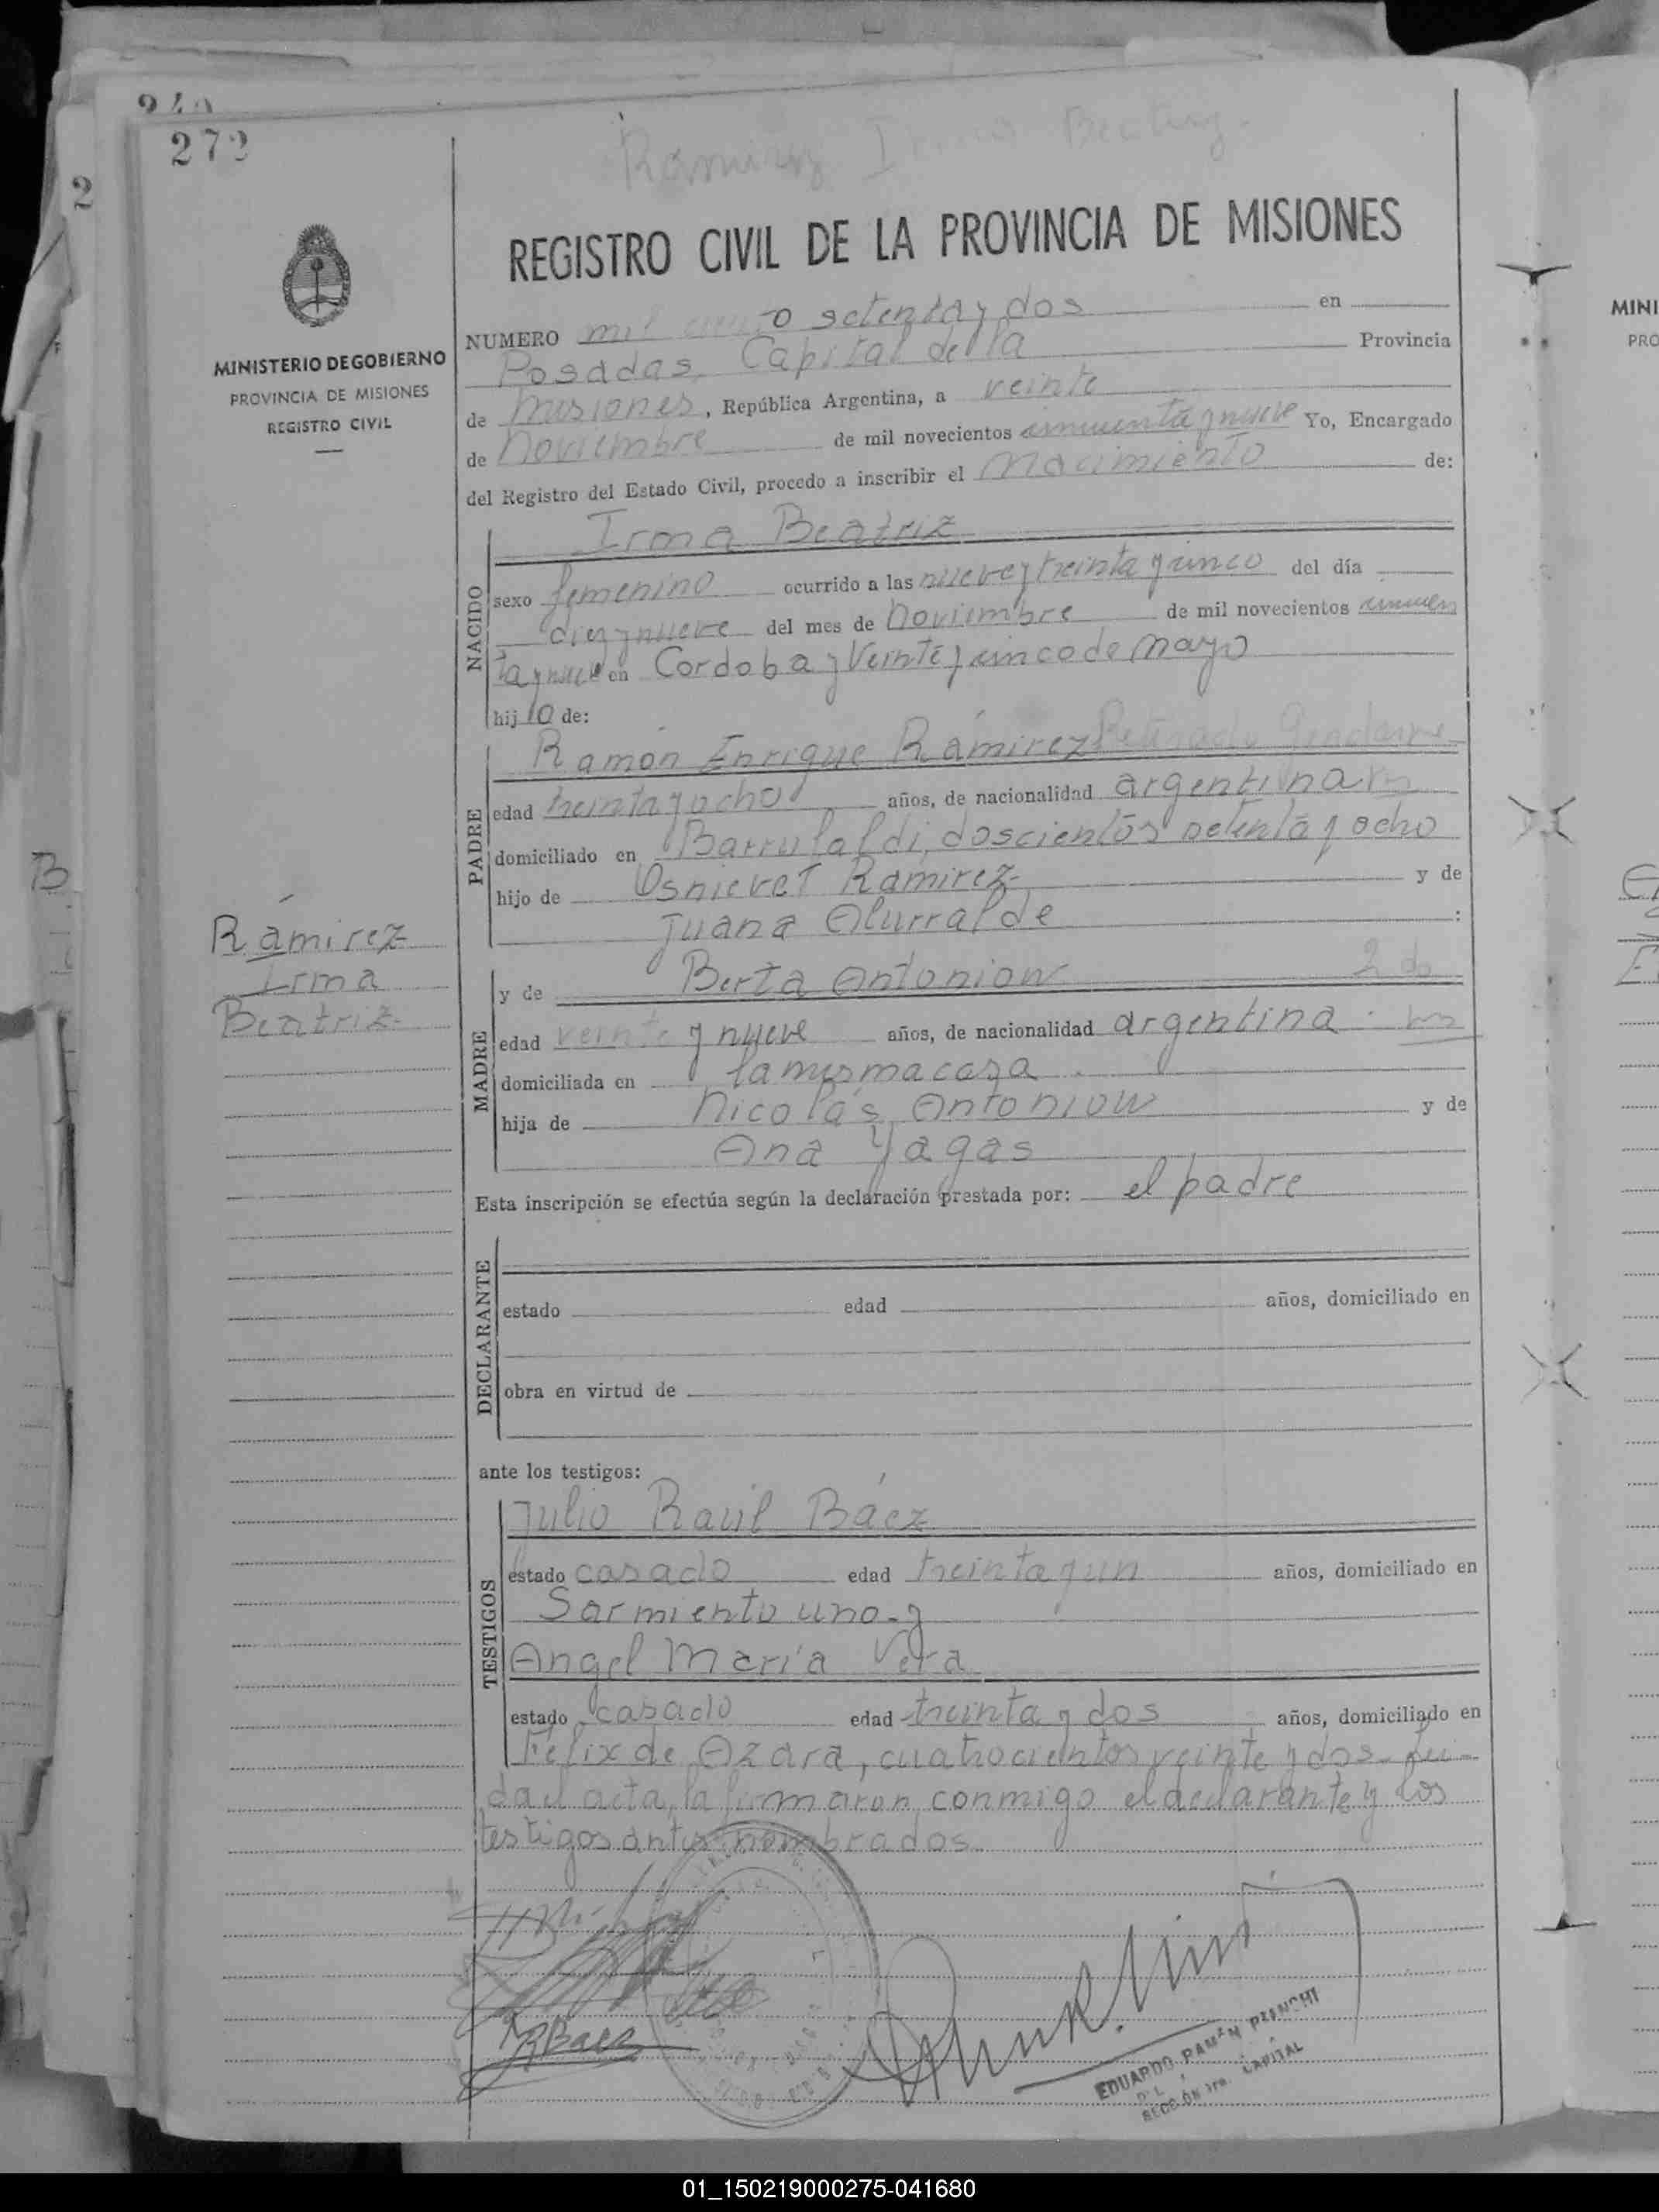 272
2
REGISTRO CIVIL DE LA PROVINCIA DE MISIONES
MINISTERIO DE GOBIERNO
PROVINCIA DE MISIONES
REGISTRO CIVIL
NUMERO mil ciento setenta y dos en
Posadas, Capital de la Provincia
de Misiones, República Argentina, a veinte
de Noviembre de mil novecientos cincuenta y nueve Yo, Encargado
del Registro del Estado Civil, procedo a inscribir el Nacimiento de:
NACIDO
Irma Beatriz
sexo femenino ocurrido a las nueve y treinta y cinco del día
diez y nueve del mes de Noviembre de mil novecientos cincuen
ta y nueve en Cordoba y Veinte y cinco de Mayo
hij de:
PADRE
Ramón Enrique Ramirez Retirado Gendarme
edad treinta y ocho años, de nacionalidad argentina
domiciliado en doscientos setenta y ocho
hijo de Ramirez y de
Juana Alurralde :
Ramirez
Irma
Beatriz
MADRE
y de Berta Antoniow 2 do
edad veinte y nueve años, de nacionalidad argentina
domiciliada en la misma casa
hija de Nicolás Antoniow y de
Ana Yagas
Esta inscripción se efectúa según la declaración prestada por: el padre
DECLARANTE
estado edad años, domiciliado en
obra en virtud de
ante los testigos:
TESTIGOS
Julio Raúl Báez
estado casado edad treinta y un años, domiciliado en
Sarmiento uno y
Angel María Vera
estado casado edad treinta y dos años, domiciliado en
Félix de Azara, cuatrocientos veinte y dos- Leí-
da el acta, la firmaron conmigo el declarante y los
testigos antes nombrados.
JRBaez
EDUARDO RAMON BIANCHI
CAPITAL
01_150219000275-041680